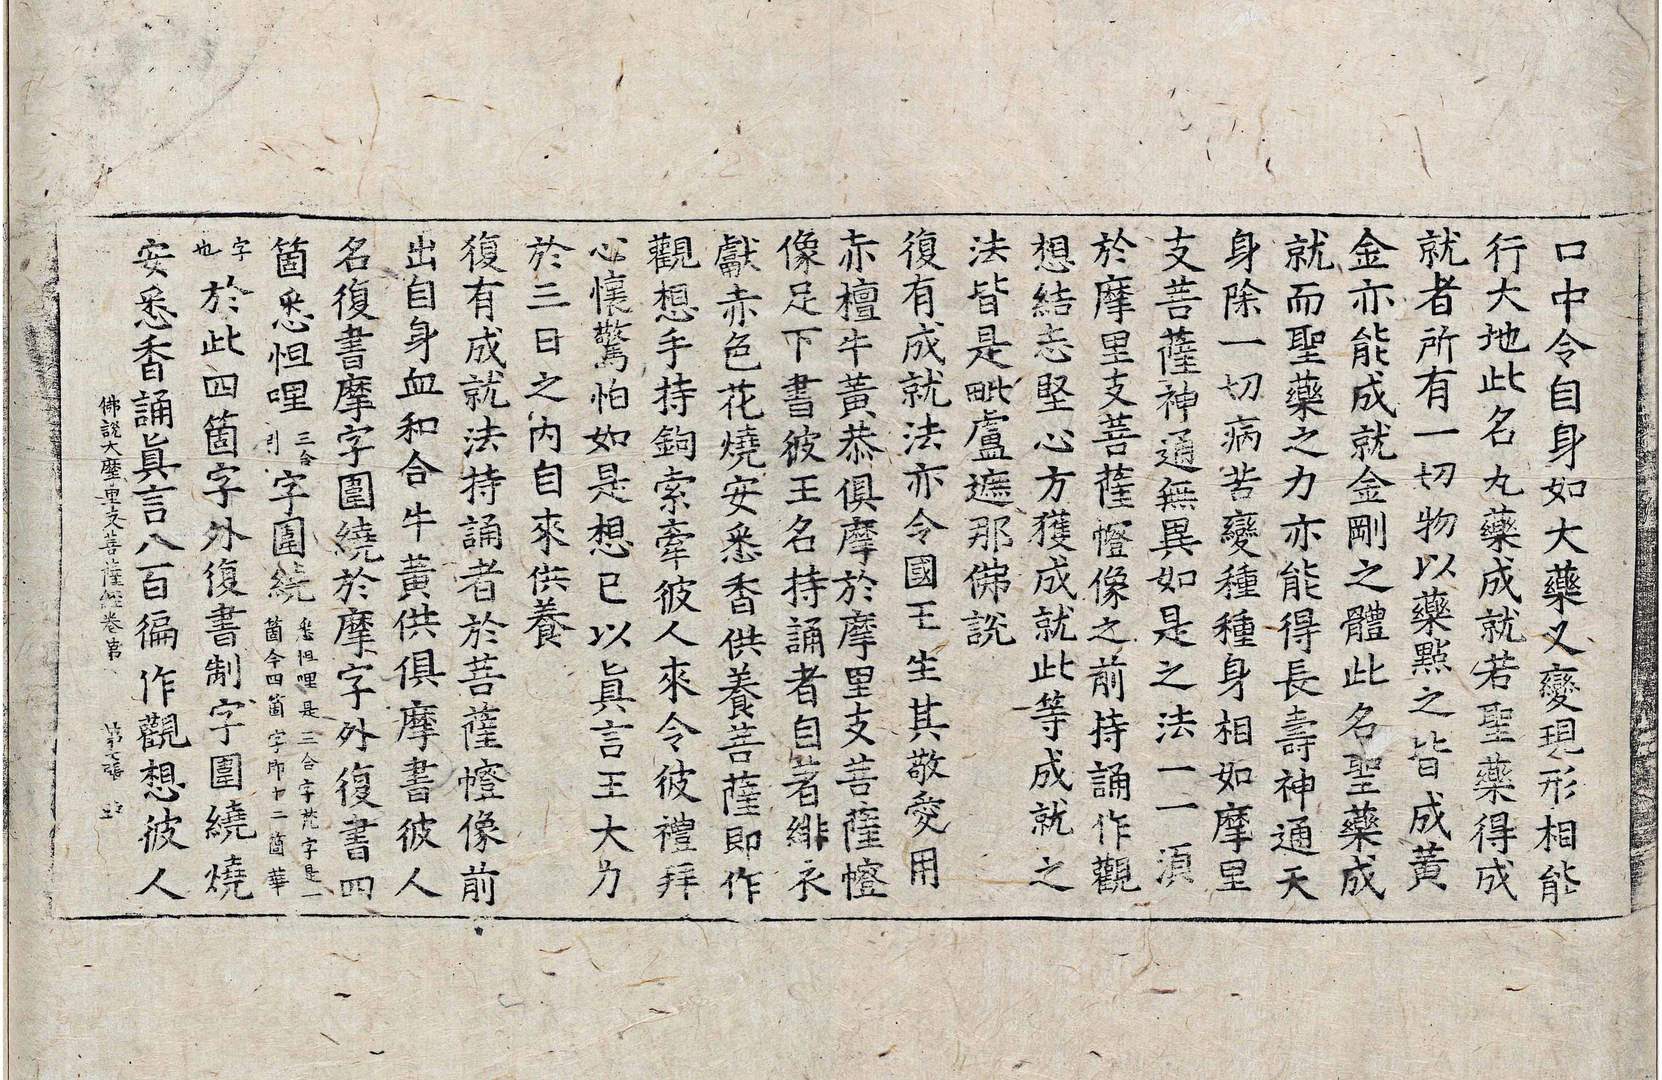 口中令自身如大藥叉變現形相能
行大地此名丸藥成就若聖藥得成
就者所有一切物以藥點之皆成黃
金亦能成就金剛之體此名聖藥成
就而聖藥之力亦能得長壽神通天
身除一切病苦變種種身相如摩里
支菩薩神通無異如是之法一一須
於摩里支菩薩幢像之前持誦作觀
想結志堅心方獲成就此等成就之
法皆是毗盧遮那佛說
復有成就法亦令國王生其敬愛用
赤檀牛黃恭俱摩於摩里支菩薩幢
像足下書彼王名持誦者自著緋衣
獻赤色花燒安悉香供養菩薩即作
觀想手持鉤索牽彼人來令彼禮拜
心懷驚怕如是想已以眞言王大力
於三日之內自來供養
復有成就法持誦者於菩薩幢像前
出自身血和合牛黃供俱摩書彼人
名復書摩字圍繞於摩字外復書四
箇悉怛哩三合引字圍繞悉怛哩是三合字梵字是一箇令四箇字即十二箇華
字也於此四箇字外復書制字圍繞燒
安悉香誦眞言八百徧作觀想彼人
佛說大摩里支菩薩經卷第 第七張